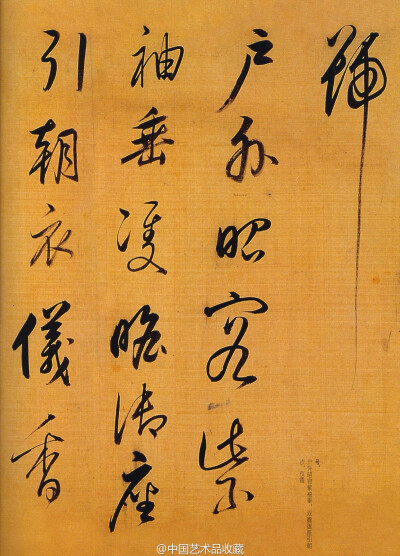 號
户外昭容紫
袖垂雙瞻御座
引朝衣儀香
@中国艺术品收藏